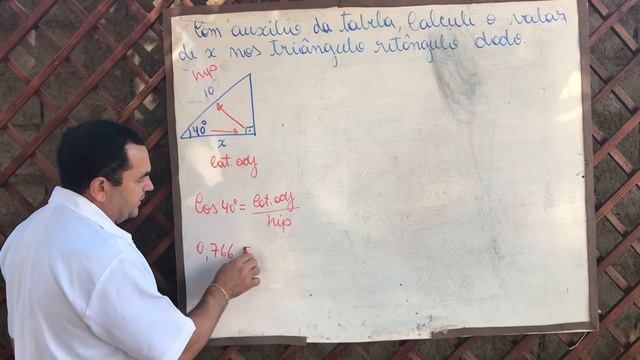 Com auxílio da tabela, Calcule o valor
de x nos triângulo retângulo dado.
hip
10
40°
x
Cat. adj
Cos 40° = Cat. adj
hip
0,766